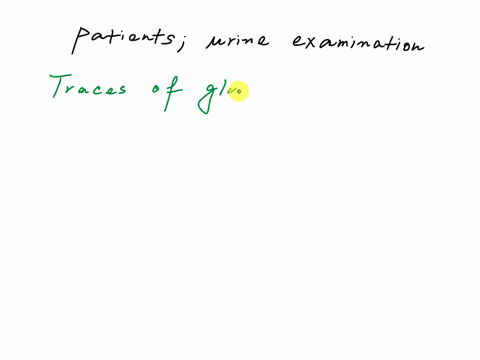 Patients; urine examination
Traces of glu